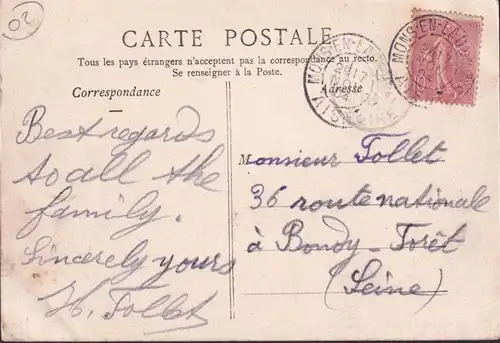 02
CARTE POSTALE
Tous les pays étrangers n'acceptent pas la correspondance au recto.
Se renseigner à la Poste.
Correspondance
Adresse
MONS-EN-LA
MONS-EN-LA
Best regards
to all the
family.
Sincerely yours
H. Follet
Monsieur Follet
36 route nationale
à Bondy-Forêt
(Seine)